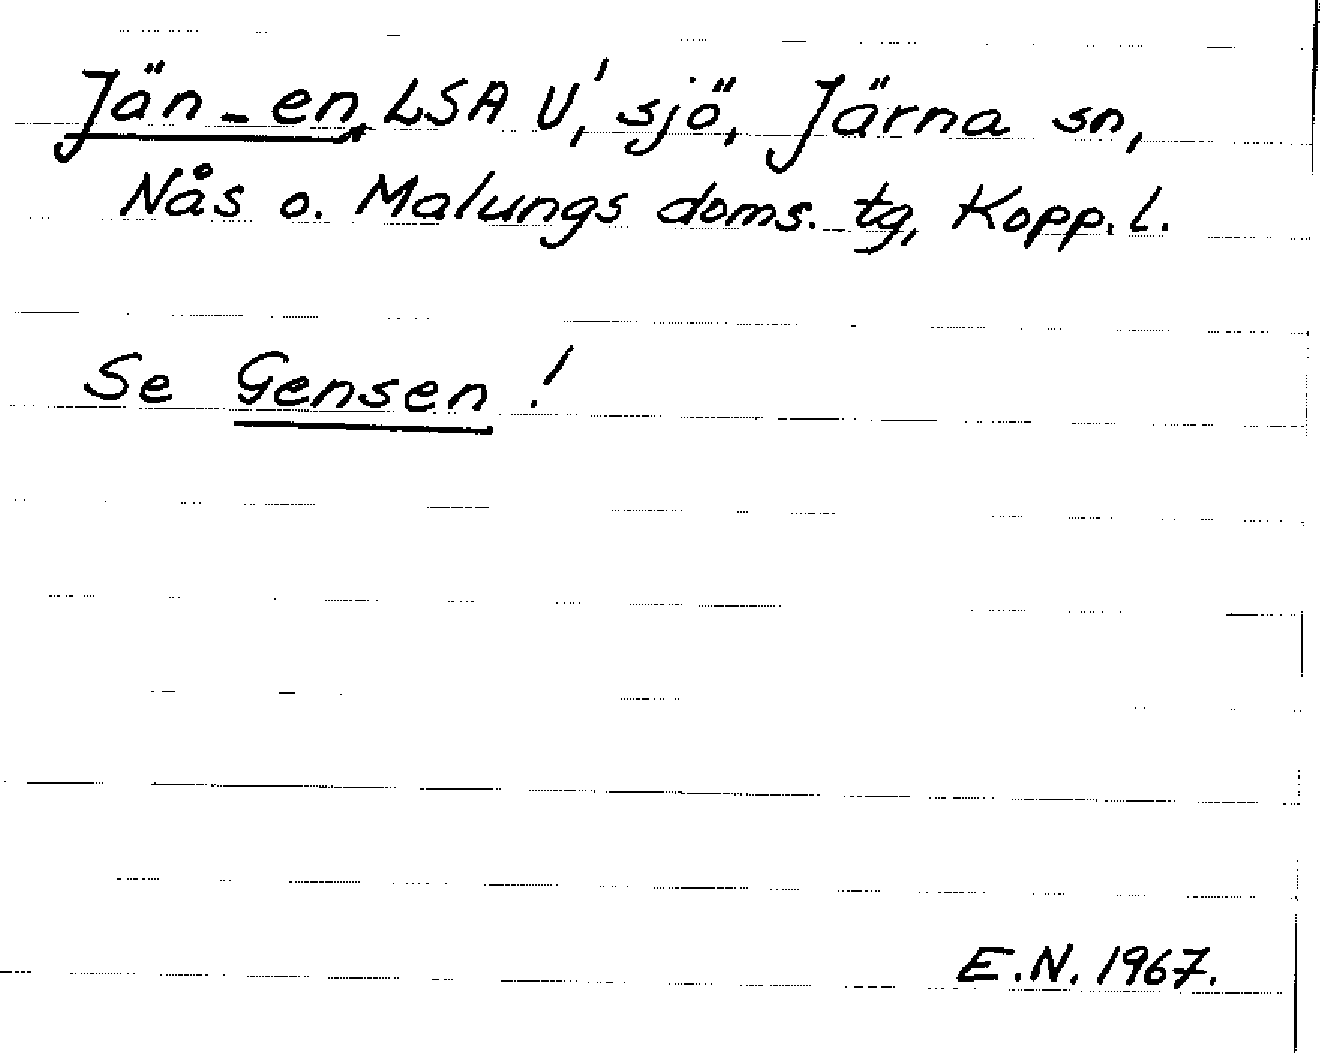 Jän-en, LSA U', sjö, Järna sn,
Nås o. Malungs doms. tg, Kopp. l.
Se Gensen!
E.N. 1967.